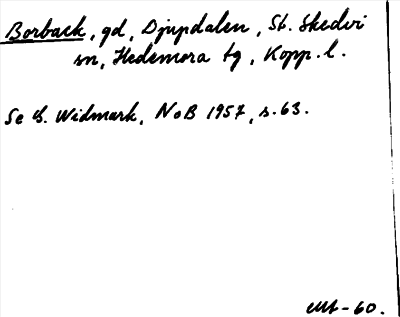 Borback, gd, Djupdalen, St. Skedvi
sn, Hedemora tg, Kopp. l.
Se G. Widmark, NoB 1957, s. 63.
-60.